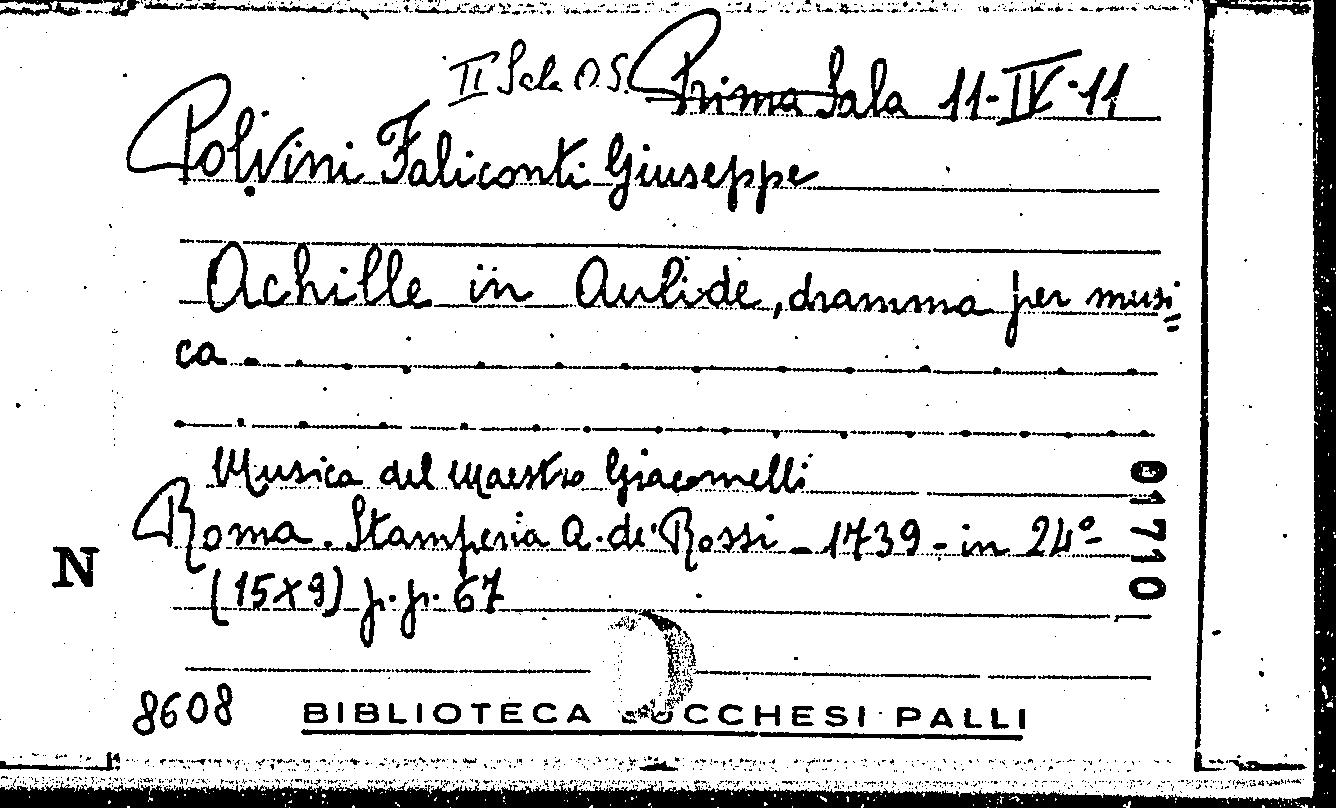 II Sala O.S. Prima Sala 11-IV-11
Polvini Faliconti Giuseppe
Achille in Aulide, dramma per musi=
ca . . . . . . . . . . . . .
. . . . . . . . . . . . . . .
Musica del Maestro Giacomelli
Roma. Stamperia A. de' Rossi - 1739 - in 24º
(15x9) p.p. 67
N
01710
8608
BIBLIOTECA LUCCHESI PALLI